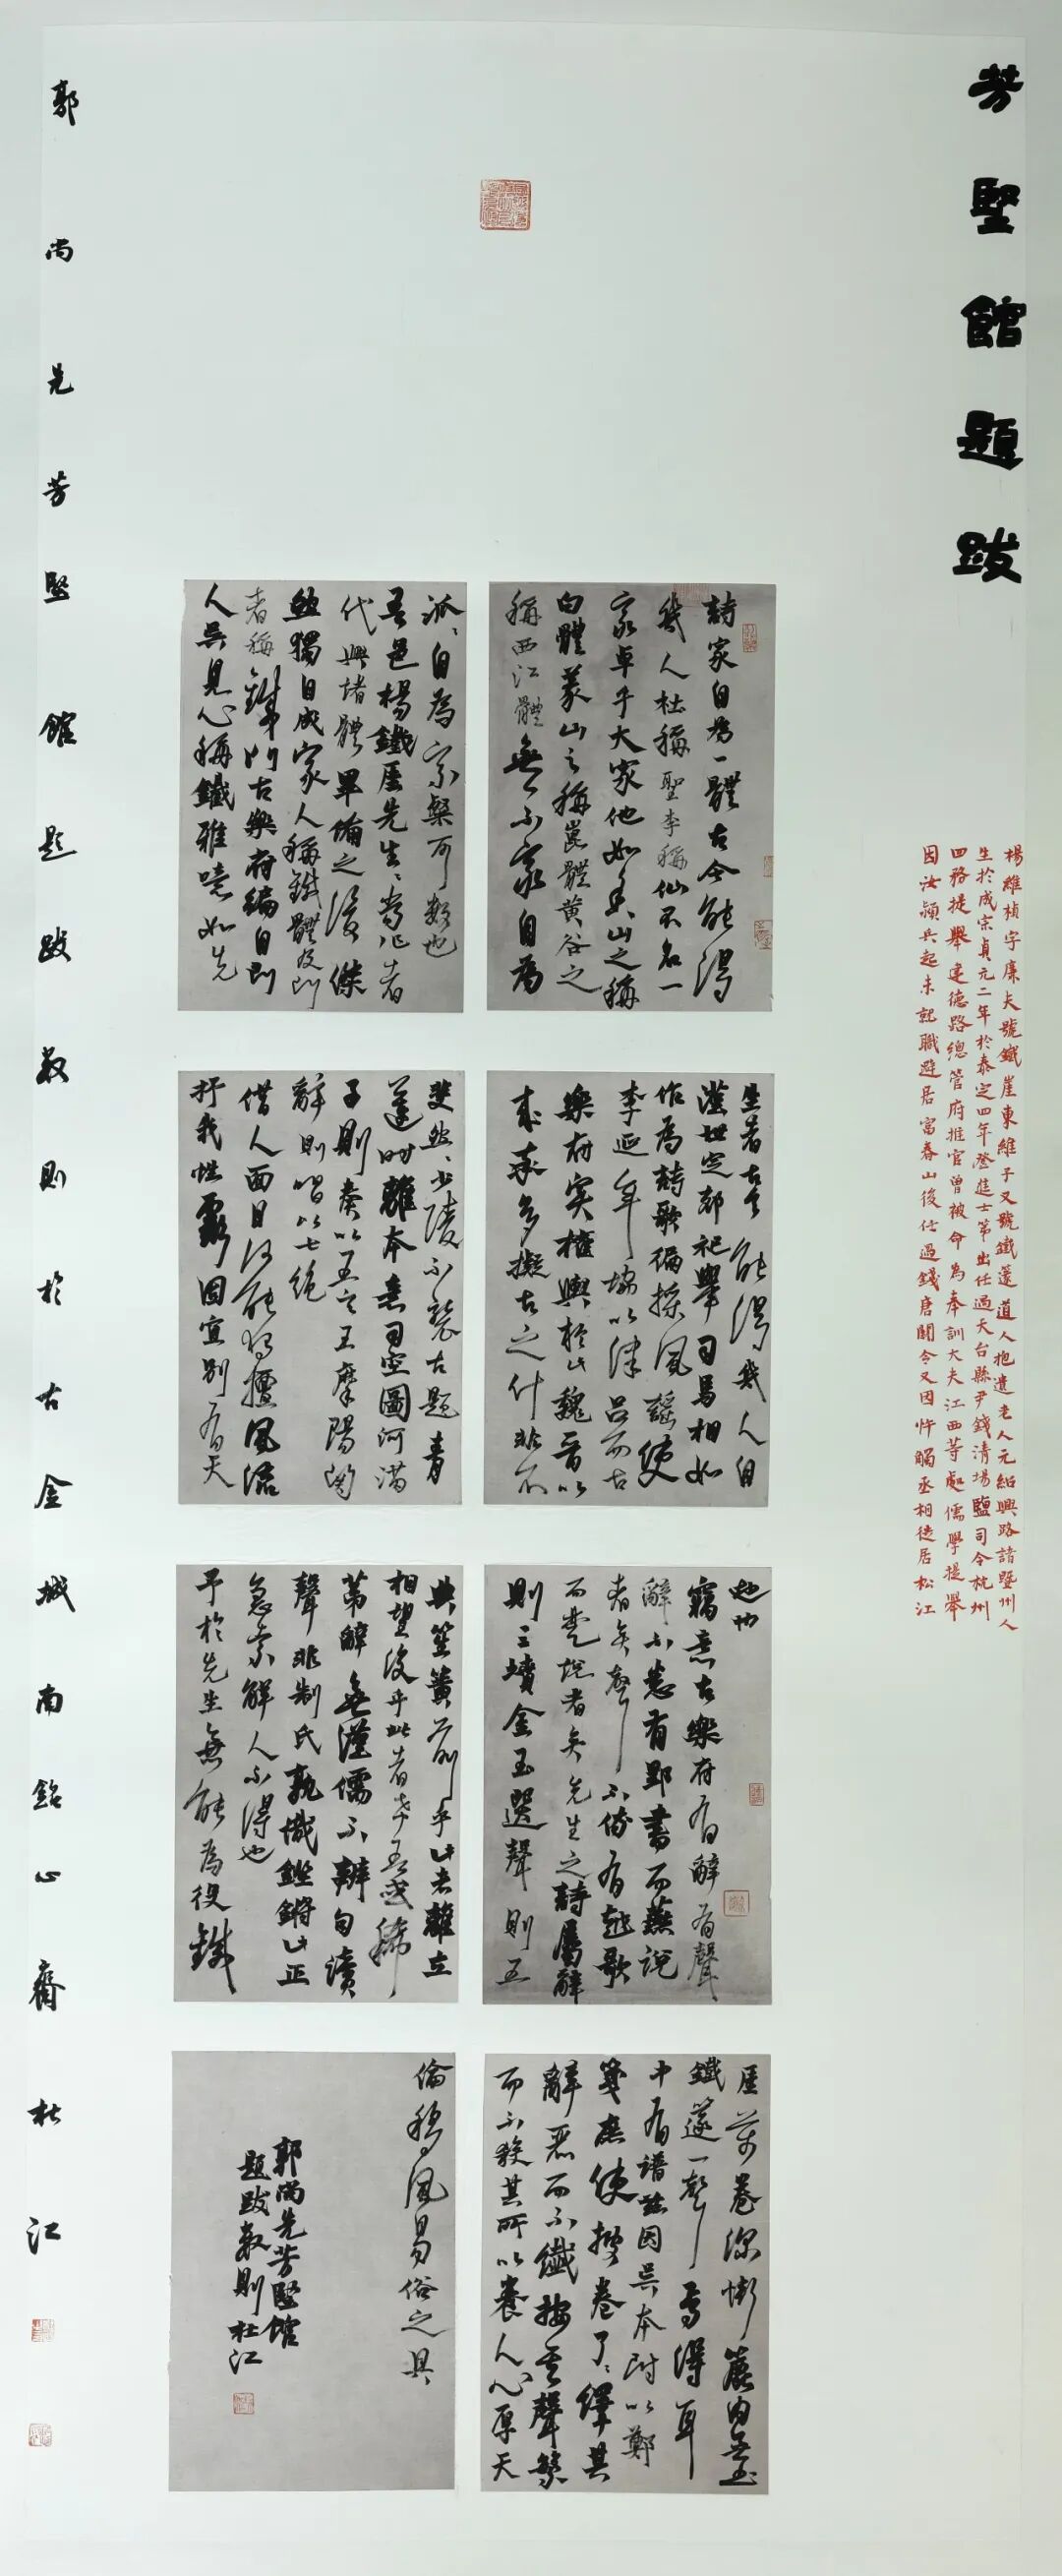 芳堅館題跋
楊維楨字廉夫號鐵崖東維子又號鐵邃道人抱遺老人元紹興路諸暨州人
生於成宗貞元二年於泰定四年登進士第出任過天台縣尹錢清場鹽司令杭州
四務提舉建德路總管府推官曾被命為奉訓大夫江西等處儒學提舉
因汝潁兵起未就職避居富春山後仕過錢唐關令又因忤觸丞相徙居松江
詩家自為一體古今能得
幾人杜稱聖李稱仙不名一
家卓乎大家他如香山之稱
白體義山之稱崑體黃谷之
稱西江體無不家自為
派派自為宗槩可數也
吾邑楊鐵厓先生生當作者
代興堵體畢備之後傑
然獨自成家人稱鐵體及即
者稱鐵門古樂府編自
人吳見心稱鐵雅嘻如先
生者古今能得幾人自
漢世定郊祀舉司馬相如
作為詩歌徧採風謠使
李延年協以律呂而古
樂府實權輿於此魏晉以
來承多擬古之什非不
斐然然少陵不襲古題青
蓮時離本意司空圖河滿
子則奏以五言王摩陽關
辭則唱以七絕
借人面目何能獨擅風流
抒我性靈固宜別有天
地也
竊意古樂府有辭有聲
辭不悉有郢書而燕說
者矣聲不傳有越歌
而楚說者矣先生之詩屬辭
則三墳金玉選聲則五
典笙簧前乎此者離立
相望後乎此者步武或稀
第辭無漢儒不辭句讀
聲非制氏孰識鏗鏘此正
急索解人不得也
予於先生無能為役鐵
厓萬卷深慚簾內無
鐵邃一聲焉得耳
中有譜茲因吳本附以鄭
箋庶使披卷了了繹其
辭惡而不纖按其聲繁
而不殺其所以養人心厚天
倫移風易俗之具
郭尚先芳堅館
題跋數則杜江
郭尚先芳堅館題跋數則於古金城南銘心齋杜江